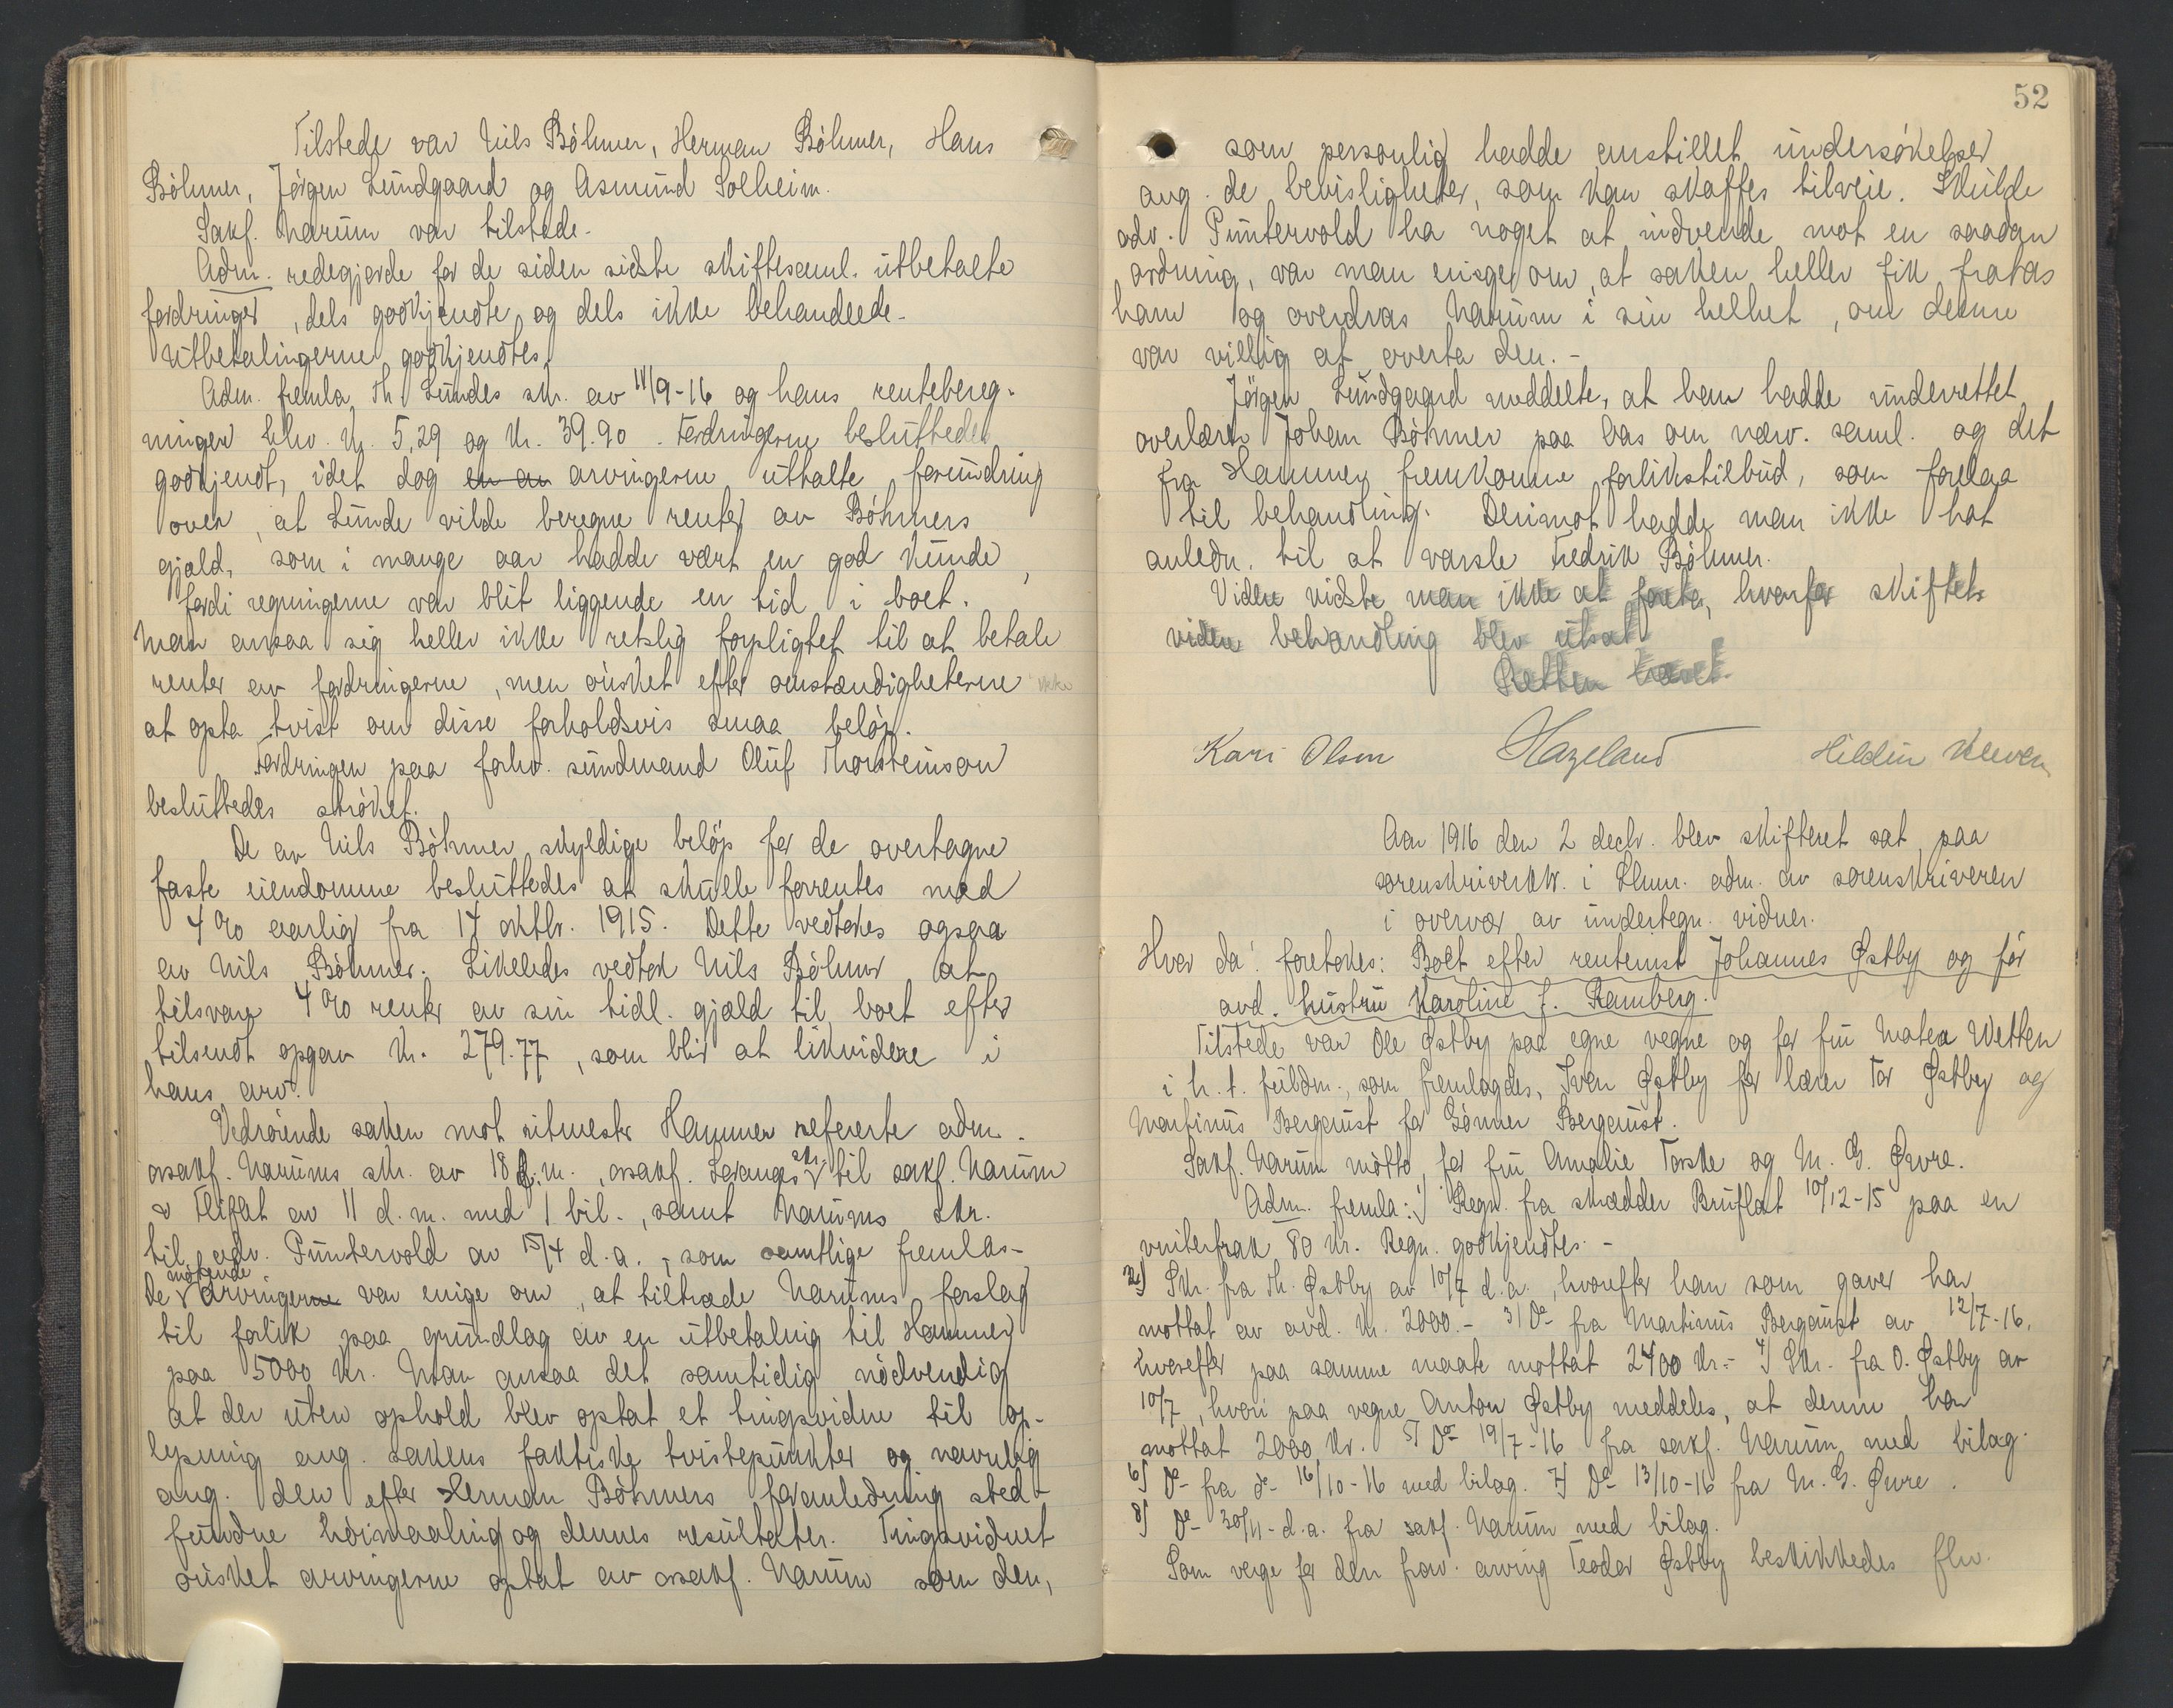 Tilstede var Nils Böhmer, Herman Böhmer, Hans
Böhmer, Jörgen Lundgaard og Asmund Solheim.
Sakf. Narum var tilstede.
Adm. redegjorde for de siden sidste skiftesaml. utbetalte
fordringer, dels godkjendte og dels ikke behandlede.
Utbetalingerne godkjendtes.
Adm. fremla Th. Lundes skr. av 11/9-16 og hans rentebereg-
ninger hhv. kr. 5,29 og kr. 39.90. Fordringerne besluttedes
godkjendt, idet dog en an arvingerne uttalte forundring
over, at Lunde vilde beregne renter av Böhmers
gjæld, som i mange aar hadde vært en god kunde,
fordi regningerne var blit liggende en tid i boet.
Man ansaa sig heller ikke retslig forpligtet til at betale
renter av fordringerne, men önsket efter omstændigheterne ikke
at opta tvist om disse forholdsvis smaa beløp.
Fordringen paa forhv. sundmand Oluf Thorsteinson
besluttedes strøket.
De av Nils Böhmer skyldige beløp for de overtagne
faste eiendomme besluttedes at skulle forrentes med
4 % aarlig fra 14 oktbr. 1915. Dette vedtokes ogsaa
av Nils Böhmer. Likeledes vedtok Nils Böhmer at
tilsvare 4 % renter av sin tidl. gjæld til boet efter
tilsendt opgav kr. 279.77, som blir at likvidere i
hans arv.
Vedrørende saken mot ritmester Hammer refererte adm.
osakf. Narums skr. av 18 d.m., osakf. skr. til sakf. Narum
av 11 d.m. med 1 bil., samt Narums skr.
til adv. Puntervold av 15/4 d.a., som samtlige fremlas.
De mötende arvingerne var enige om, at tiltræde Narums forslag
til forlik paa grundlag av en utbetaling til Hammer
paa 5000 kr. Man ansaa det samtidig nödvendig
at der uten ophold blev optat et tingsvidne til op-
lysning ang. sakens faktiske tvistepunkter og navnlig
ang. den efter Herman Böhmers foranledning sted-
fundne hörimaaling og dennes resultater. Tingsvidnet
önsket arvingerne optat av osakf. Narum som den,
52
som personlig hadde anstillet undersökelser
ang. de bevisligheter, som kan skaffes tilveie. Skulde
adv. Puntervold ha noget at indvende mot en saadan
ordning, var man enige om, at saken heller fik fratas
ham og overdras Narum i sin helhet, om denne
var villig at overta den. -
Jörgen Lundgaard meddelte, at han hadde underrettet
overlærer Johan Böhmer paa Aas om nærv. saml. og det
fra Hammer fremkomne forlikstilbud, som forelaa
til behandling. Derimot hadde man ikke hat
anledn. til at varsle Fredrik Böhmer.
Videre vidste man ikke at foreta, hvorfor skiftets
videre behandling blev utsat.
Retten hævet.
Kari Olsen Hazeland Hildur Kleven
Aar 1916 den 2 decbr. blev skifteret sat paa
sorenskriverktr. i Lhmr. adm. av sorenskriveren
i overvær av undertegn. vidner.
Hvor da foretokes: Boet efter rentenist Johannes Østby og för
avd. hustru Karoline f. Ramberg.
Tilstede var Ole Østby paa egne vegne og for fru Matea Wetten
i h. t. fuldm., som fremlagdes, Iver Østby for lærer Tor Østby og
Martinus Bergquist for Gunner Bergquist.
Sakf. Narum mötte for fru Amalie Torske og M. G. Øvre.
Adm. fremla: 1) Regn. fra skrædder Bruflat 10/12-15 paa en
vinterfrak 80 kr. Regn. godkjendtes. -
2) Skr. fra Th. Østby av 10/7 d.a., hvorefter han som gaver har
mottat av avd. kr. 2000.- 3) Do fra Martinus Bergquist av 12/7-16,
hvorefter paa samme maate mottat 2400 kr.- 4) Skr. fra O. Østby av
10/7, hvori paa vegne Anton Østby meddeles, at denne har
mottat 2000 kr. 5) Do 19/7-16 fra sakf. Narum med bilag.
6) Do fra do 16/10-16 med bilag. 7) Do 13/10-16 fra M. G. Øvre.
8) Do 30/11-d.a. fra sakf. Narum med bilag.
Som verge for den frav. arving Teodor Østby beskikkedes fhv.